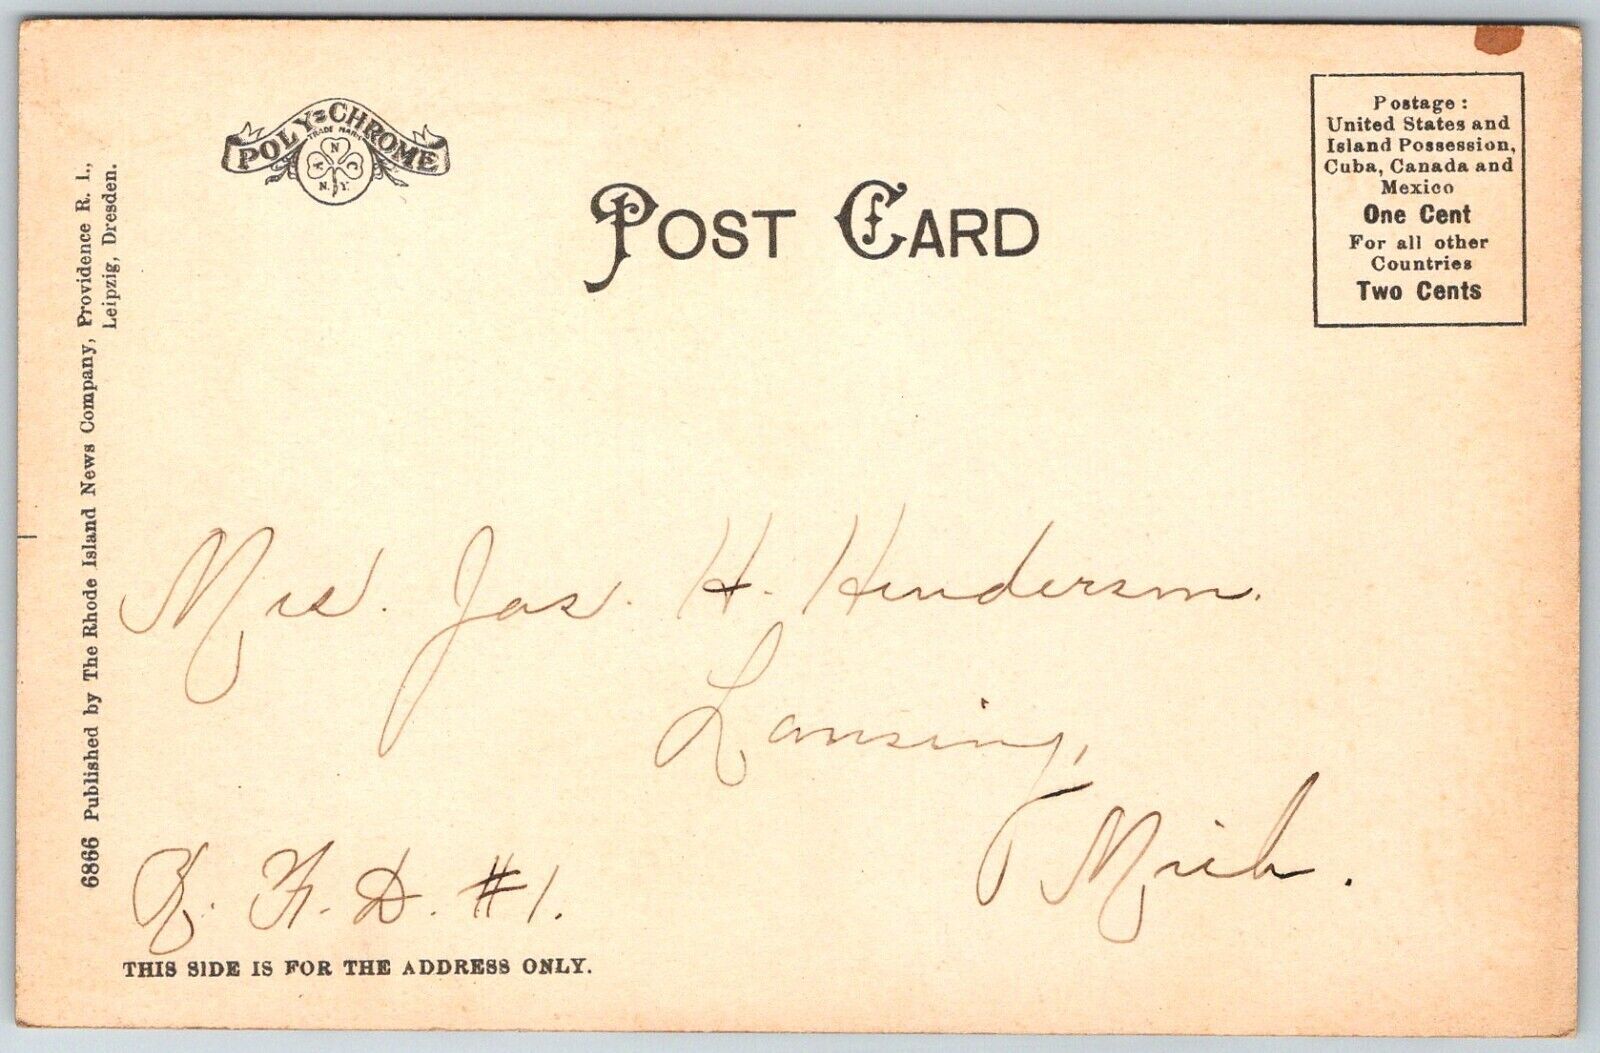 POLY-CHROME
TRADE MARK
A N C
N. Y.
POST CARD
Postage :
United States and
Island Possession,
Cuba, Canada and
Mexico
One Cent
For all other
Countries
Two Cents
6866 Published by The Rhode Island News Company, Providence R. I.,
Leipzig, Dresden.
Mrs. Jas. H. Henderson.
Lansing,
Mich.
R. F. D. #1.
THIS SIDE IS FOR THE ADDRESS ONLY.